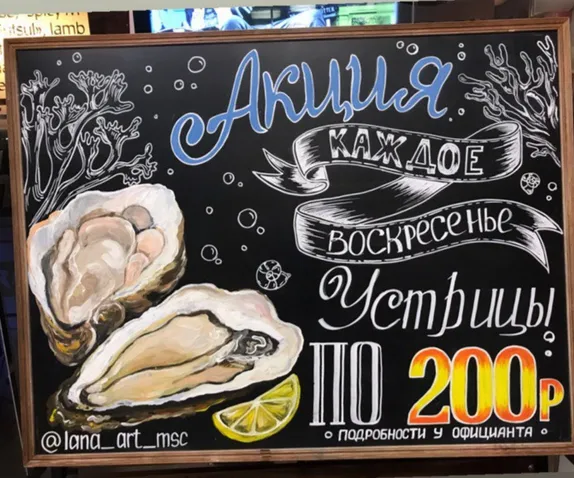 lamb
Акция
КАЖДОЕ
ВОСКРЕСЕНЬЕ
Устрицы
ПО 200р
ПОДРОБНОСТИ У ОФИЦИАНТА
@lana_art_msc